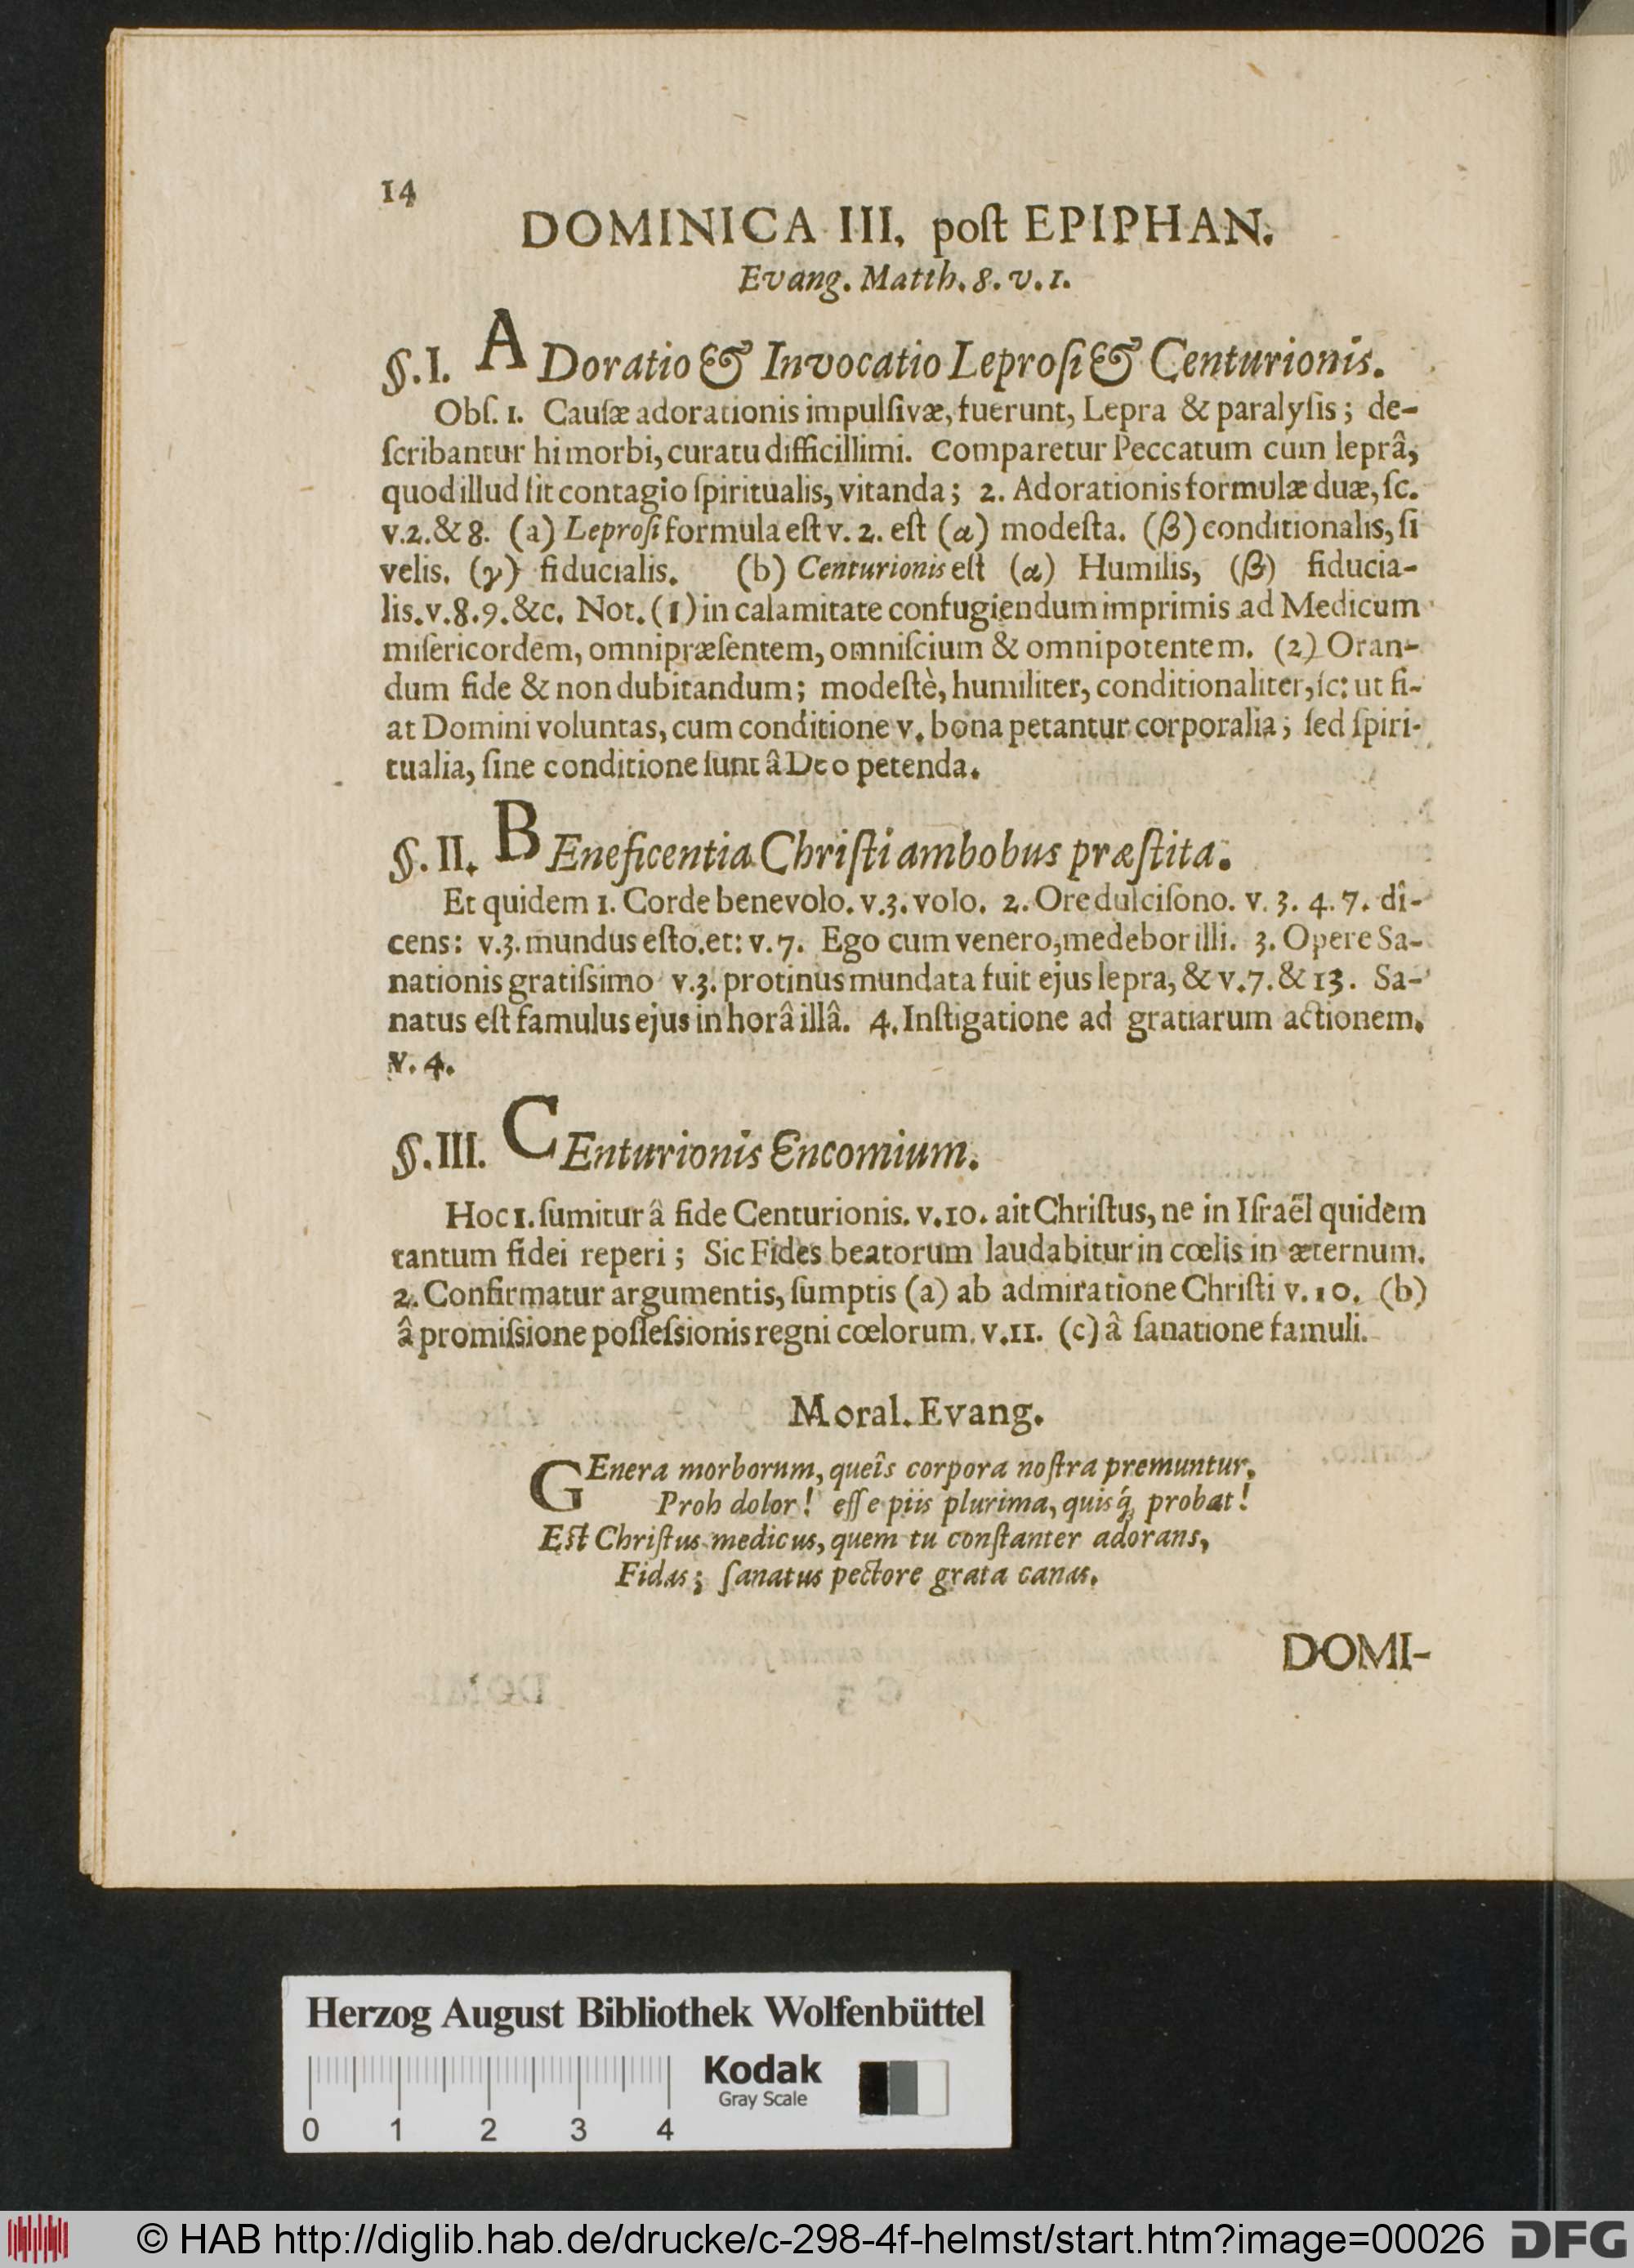 14
DOMINICA III. poſt EPIPHAN.
Evang. Matth. 8. v. 1.
§. I. ADoratio & Invocatio Leproſi & Centurionis.
Obſ. 1. Cauſæ adorationis impulſivæ, fuerunt, Lepra & paralyſis; de-
ſcribantur hi morbi, curatu difficillimi. Comparetur Peccatum cum leprâ,
quod illud ſit contagio ſpiritualis, vitanda; 2. Adorationis formulæ duæ, ſc.
v.2. & 8. (a) Leproſi formula eſt v. 2. eſt (α) modeſta. (β) conditionalis, ſi
velis. (γ) fiducialis. (b) Centurionis eſt (α) Humilis, (β) fiducia-
lis. v. 8. 9. &c. Not. (1) in calamitate confugiendum imprimis ad Medicum
miſericordem, omnipræſentem, omniſcium & omnipotentem. (2) Oran-
dum fide & non dubitandum; modeſtè, humiliter, conditionaliter, ſc: ut fi-
at Domini voluntas, cum conditione v. bona petantur corporalia; ſed ſpiri-
tualia, ſine conditione ſunt â Deo petenda.
§. II. BEneficentia Chriſti ambobus præſtita.
Et quidem 1. Corde benevolo. v.3. volo. 2. Ore dulciſono. v. 3. 4. 7. dî-
cens: v.3. mundus eſto. et: v. 7. Ego cum venero, medebor illi. 3. Opere Sa-
nationis gratiſsimo v.3. protinus mundata fuit ejus lepra, & v.7. & 13. Sa-
natus eſt famulus ejus in horâ illâ. 4. Inſtigatione ad gratiarum actionem.
v. 4.
§. III. CEnturionis Encomium.
Hoc 1. ſumitur â fide Centurionis. v. 10. ait Chriſtus, ne in Iſraël quidem
tantum fidei reperi; Sic Fides beatorum laudabitur in cœlis in æternum.
2. Confirmatur argumentis, ſumptis (a) ab admiratione Chriſti v. 10. (b)
â promiſsione poſſeſsionis regni cœlorum. v. 11. (c) â ſanatione famuli.
Moral. Evang.
GEnera morborum, queîs corpora noſtra premuntur,
Proh dolor! eſſe piis plurima, quisq́; probat!
Eſt Chriſtus medicus, quem tu conſtanter adorans,
Fidas; ſanatus pectore grata canas.
DOMI-
Herzog August Bibliothek Wolfenbüttel
Kodak
Gray Scale
0 1 2 3 4
© HAB http://diglib.hab.de/drucke/c-298-4f-helmst/start.htm?image=00026 DFG